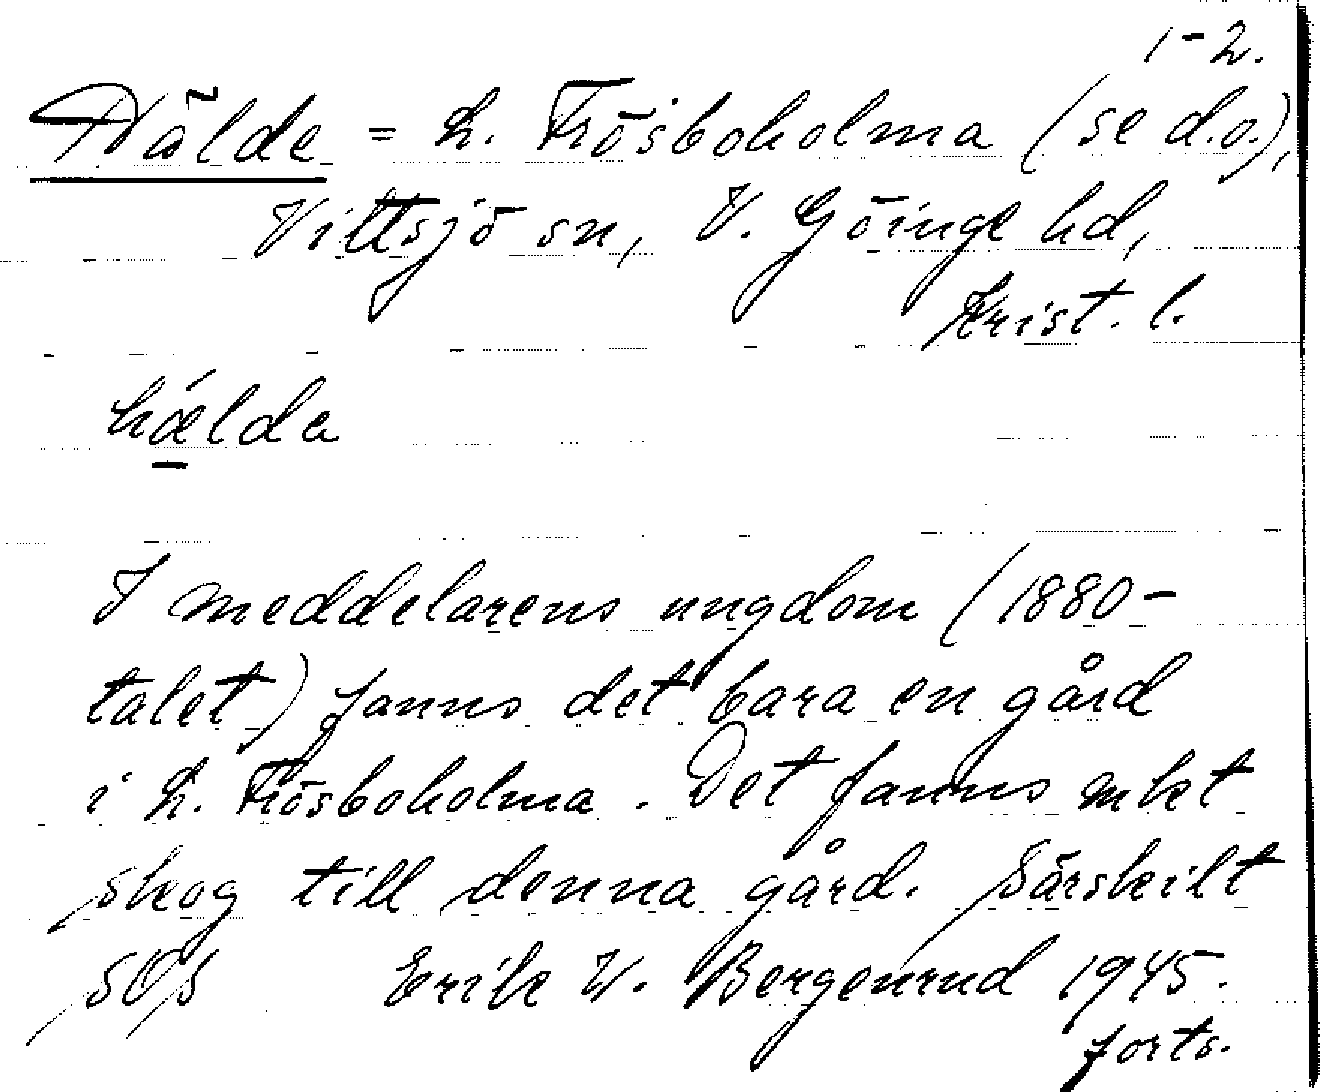 1-2.
Hälde = L. Frösboholma (se d.o.),
Vittsjö sn, V. Göinge hd,
Krist. l.
hǽlda
I meddelarens ungdom (1880-
talet) fanns det bara en gård
i L. Frösboholma. Det fanns mkt
skog till denna gård. Särskilt
SOS Erik V. Bergenrud 1945.
forts.